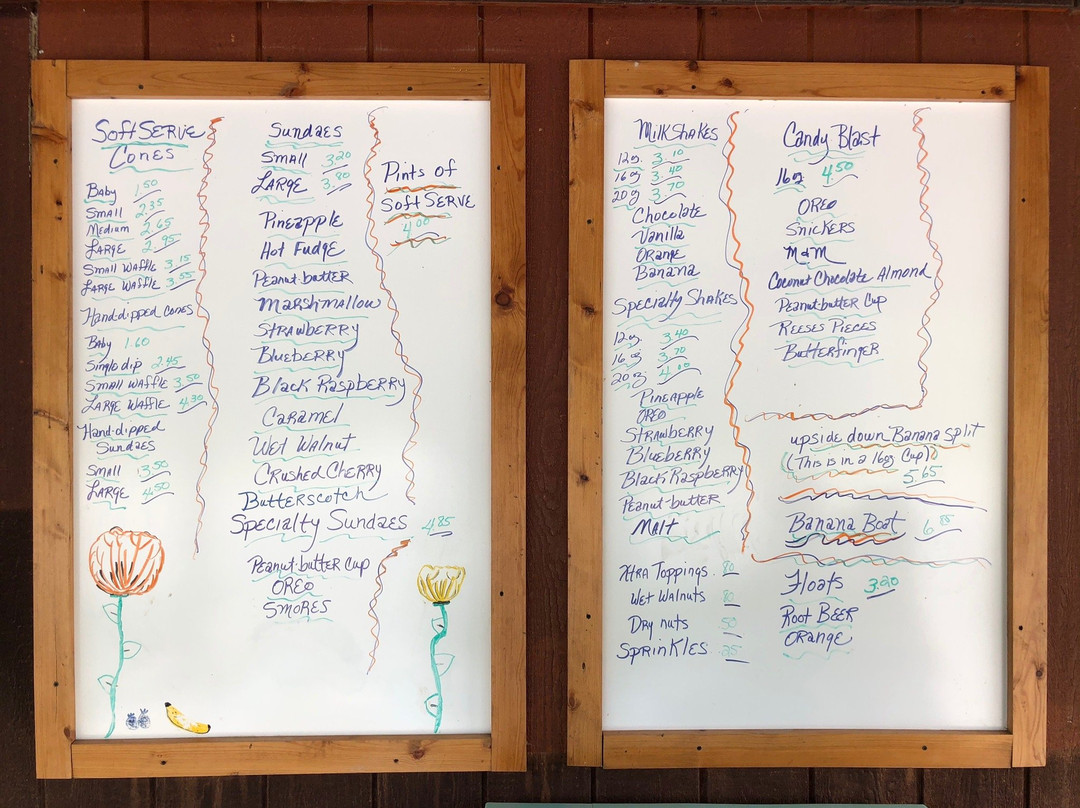 Soft SERVE
CONES
Baby 1.50
Small 2.35
Medium 2.65
LARGE 2.95
Small Waffle 3.15
LARGE Waffle 3.55
Hand-dipped cones
Baby 1.60
Single dip 2.45
Small Waffle 3.50
LARGE Waffle 4.30
Hand-dipped
Sundaes
Small 3.50
LARGE 4.50
Sundaes
Small 3.20
LARGE 3.80
Pineapple
Hot Fudge
Peanut-butter
Marshmallow
STRAWBERRY
Blueberry
Black Raspberry
CARAMEL
Wet Walnut
Crushed Cherry
Butterscotch
Specialty Sundaes 4.85
Peanut-butter Cup
OREO
SMORES
Pints of
Soft SERVE
4.00
Milkshakes
12oz 3.10
16oz 3.40
20oz 3.70
Chocolate
Vanilla
ORange
Banana
Specialty Shakes
12oz 3.40
16oz 3.70
20oz 4.00
Pineapple
OREO
Strawberry
Blueberry
Black Raspberry
Peanut-butter
Malt
Xtra Toppings .80
Wet Walnuts
Dry nuts .50
SpRinKles .25
Candy Blast
16oz 4.50
OREO
Snickers
M&M
Coconut Chocolate Almond
Peanut-butter Cup
REESES PIECES
Butterfinger
upside down Banana split
(This is in a 16oz Cup)
5.65
Banana Boat 6.85
Floats 3.20
Root BEER
ORange